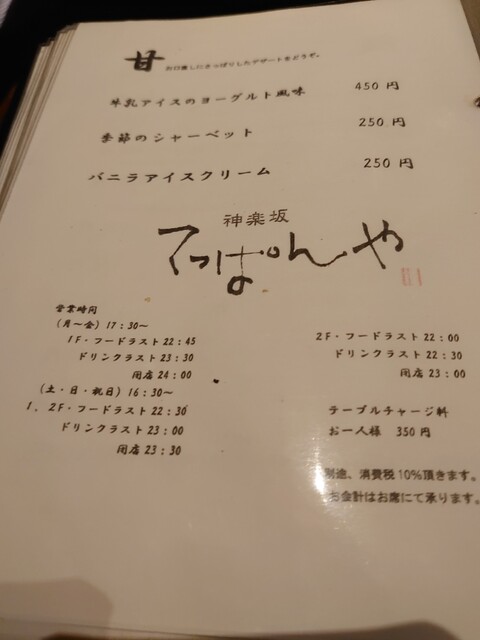 甘 お口直しにさっぱりしたデザートをどうぞ。
牛乳アイスのヨーグルト風味 450円
季節のシャーベット 250円
バニラアイスクリーム 250円
神楽坂
てっぱんや
営業時間
(月～金) 17:30～
1F・フードラスト 22:45
ドリンクラスト 23:30
閉店 24:00
(土・日・祝日) 16:30～
1.2F・フードラスト 22:30
ドリンクラスト 23:00
閉店 23:30
2F・フードラスト 22:00
ドリンクラスト 22:30
閉店 23:00
テーブルチャージ料
お一人様 350円
別途、消費税10%頂きます。
お会計はお席にて承ります。